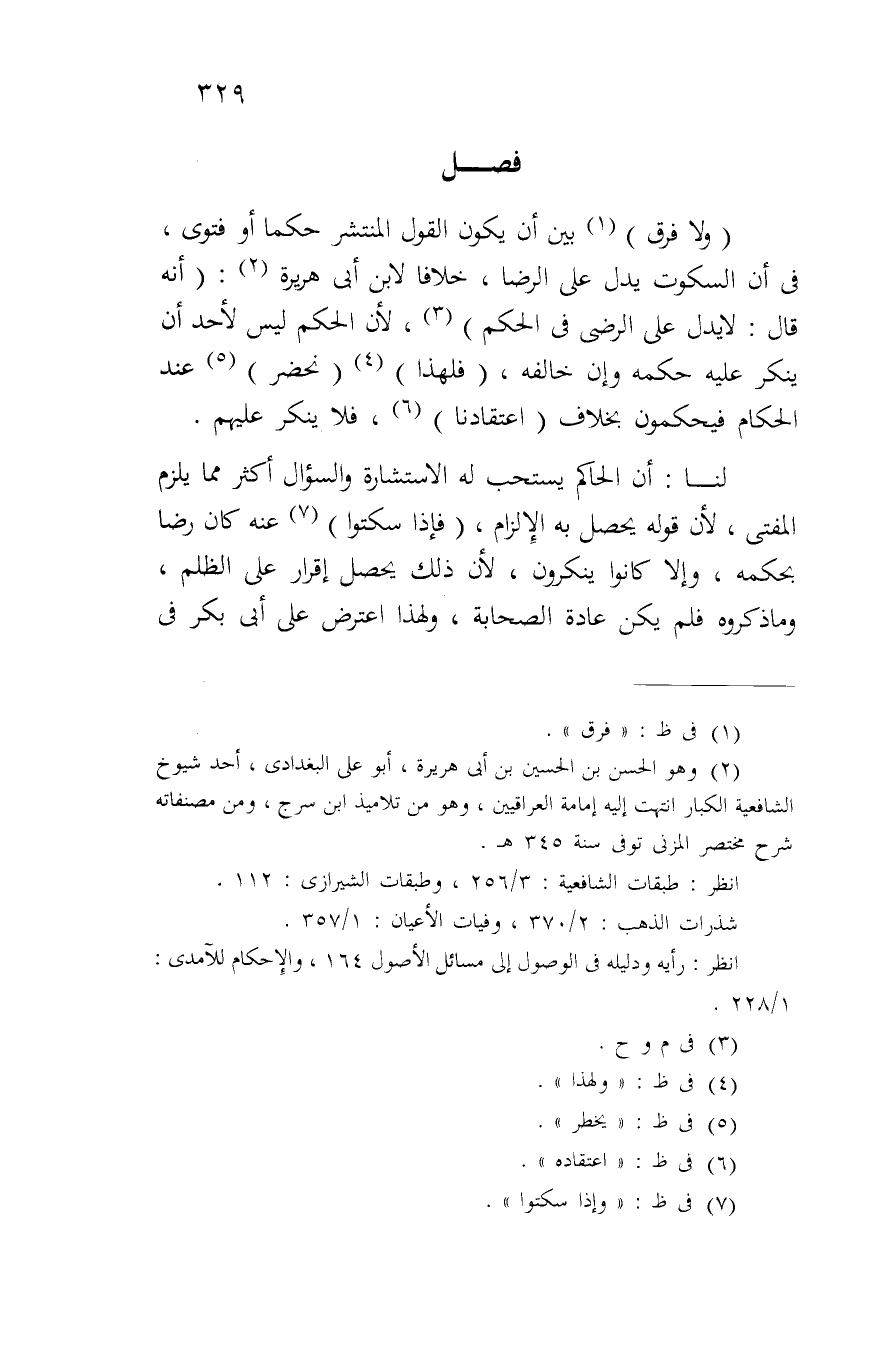 ٣٢٩
فصـــل
( ولا فرق ) (١) بين أن يكون القول المنتشر حكما أو فتوى ،
فى أن السكوت يدل على الرضا ، خلافا لابن أبى هريرة (٢) : ( أنه
قال : لايدل على الرضى فى الحكم ) (٣) ، لأن الحكم ليس لأحد أن
ينكر عليه حكمه وإن خالفه ، ( فلهذا ) (٤) ( نحضر ) (٥) عند
الحكام فيحكمون بخلاف ( اعتقادنا ) (٦) ، فلا ينكر عليهم .
لنـــا : أن الحاكم يستحب له الاستشارة والسؤال أكثر مما يلزم
المفتى ، لأن قوله يحصل به الإلزام ، ( فإذا سكتوا ) (٧) عنه كان رضا
بحكمه ، وإلا كانوا ينكرون ، لأن ذلك يحصل إقرار على الظلم ،
وماذكروه فلم يكن عادة الصحابة ، ولهذا اعترض على أبى بكر فى
(١) فى ظ : « فرق » .
(٢) وهو الحسن بن الحسين بن أبى هريرة ، أبو على البغدادى ، أحد شيوخ
الشافعية الكبار انتهت إليه إمامة العراقيين ، وهو من تلاميذ ابن سرج ، ومن مصنفاته
شرح مختصر المزنى توفى سنة ٣٤٥ هـ .
انظر : طبقات الشافعية : ٢٥٦/٣ ، وطبقات الشيرازى : ١١٢ .
شذرات الذهب : ٣٧٠/٢ ، وفيات الأعيان : ٣٥٧/١ .
انظر : رأيه ودليله فى الوصول إلى مسائل الأصول ١٦٤ ، والإحكام للآمدى :
٢٢٨/١ .
(٣) فى م و ح .
(٤) فى ظ : « ولهذا » .
(٥) فى ظ : « يخطر » .
(٦) فى ظ : « اعتقاده » .
(٧) فى ظ : « وإذا سكتوا » .